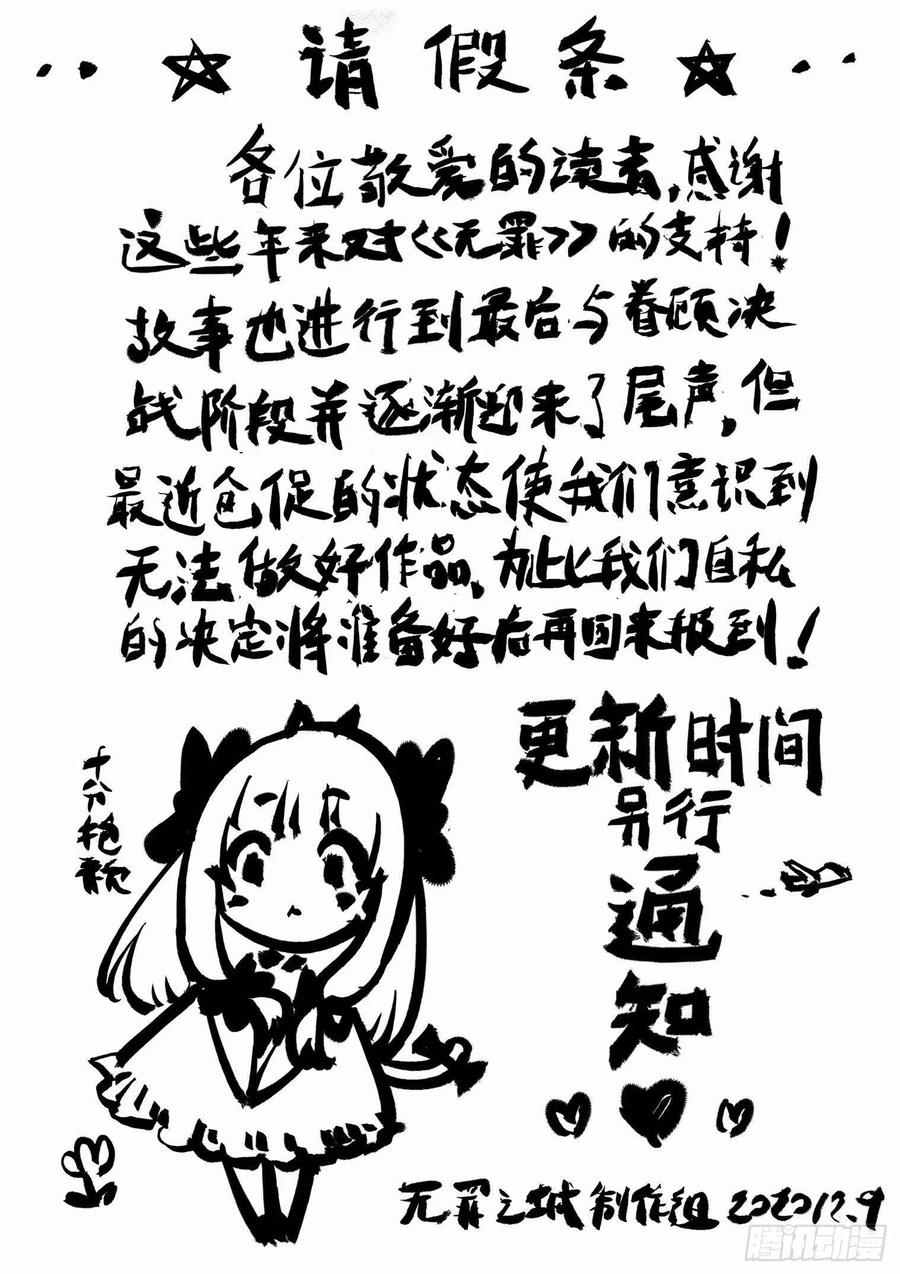 请假条
各位敬爱的读者,感谢
这些年来对《无罪》的支持!
故事也进行到最后与眷顾决
战阶段并逐渐迎来了尾声,但
最近仓促的状态使我们意识到
无法做好作品,为此我们自私
的决定将准备好后再回来报到!
更新时间
另行
通
知
十分抱歉
无罪之城制作组 2020.12.9
腾讯动漫